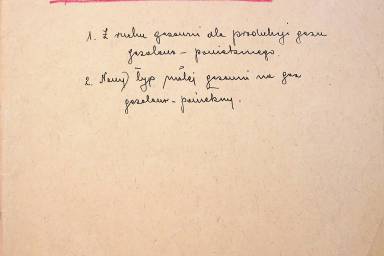 1. Z ruchu gazowni dla produkcji gazu
gazolowo - powietrznego
2. Nowy typ małej gazowni na gaz
gazolowo - powietrzny.